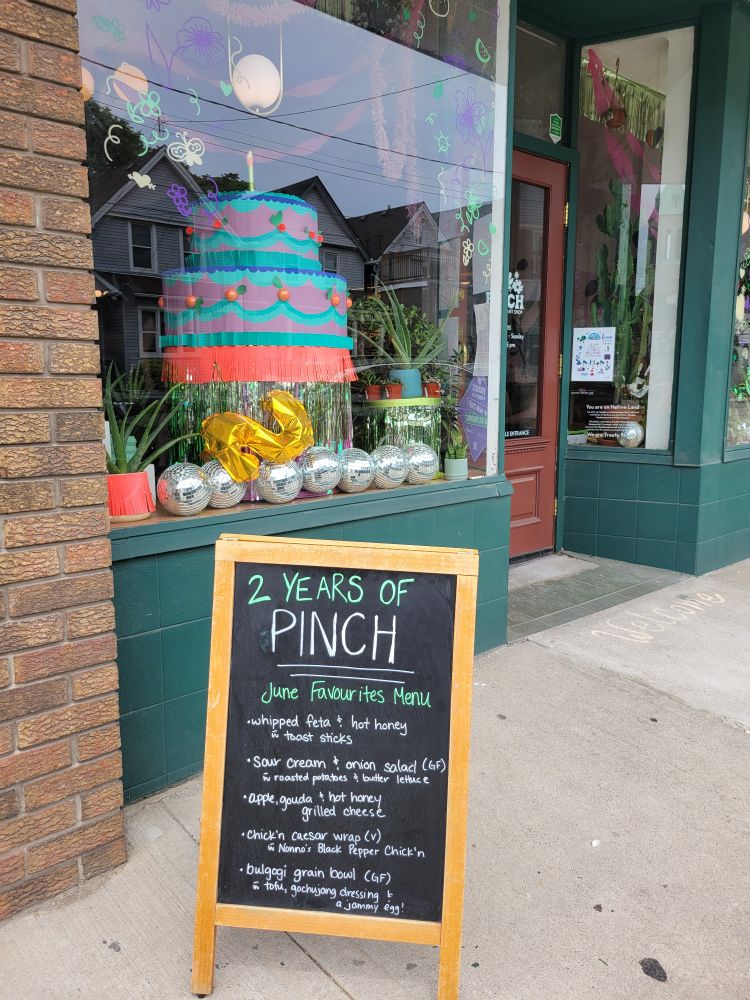 2 YEARS OF
PINCH
June Favourites Menu
• whipped feta & hot honey
w̄ toast sticks
• sour cream & onion salad (GF)
w̄ roasted potatoes & butter lettuce
• apple, gouda & hot honey
grilled cheese
• chick'n caesar wrap (V)
w̄ Nonno's Black Pepper Chick'n
• bulgogi grain bowl (GF)
w̄ tofu, gochujang dressing &
a jammy egg!
Sunday
ENTRANCE
You are on Native Land
We are Treaty
Welcome